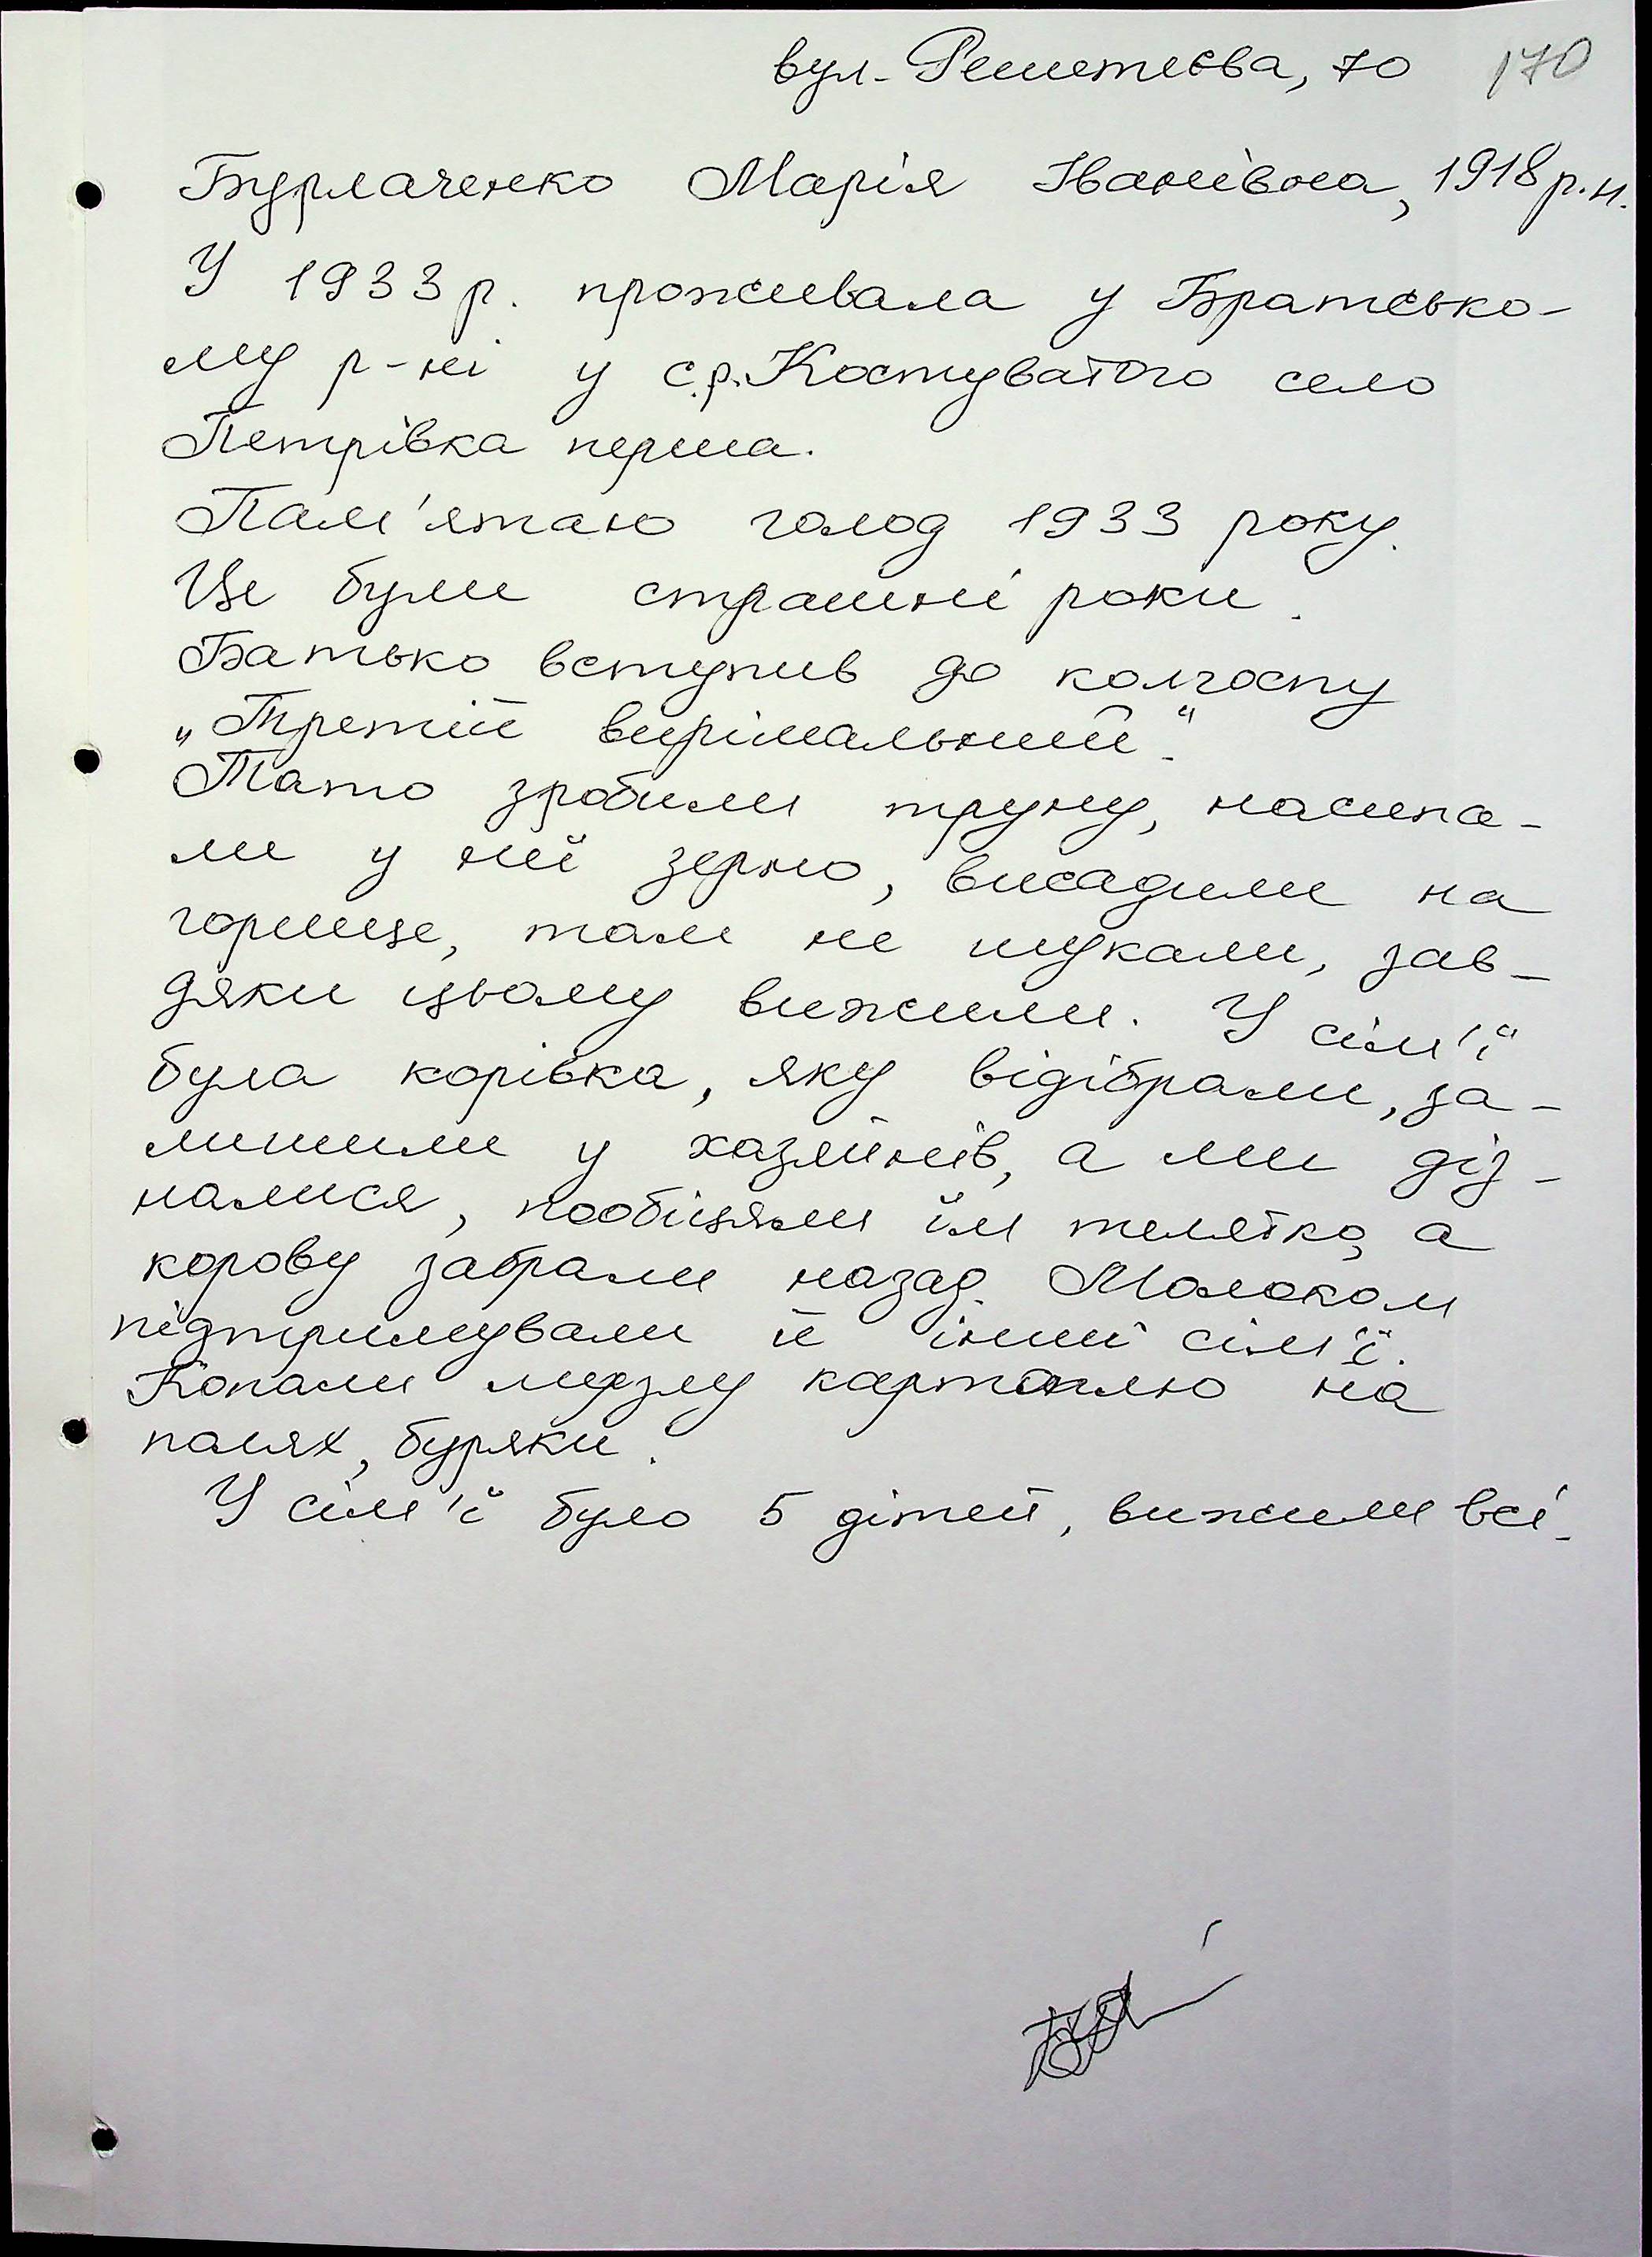 вул. Решетєєва, 70 170
Бурлаченко Марія Іванівна, 1918 р.н.
У 1933 р. проживала у Братсько-
му р-ні у с.р. Костуватого село
Петрівка перша.
Пам'ятаю голод 1933 року.
Це були страшні роки.
Батько вступив до колгоспу
„Третій вирішальний".
Тато зробили труну, насипа-
ли у неї зерно, висадили на
горище, там не шукали, зав-
дяки цьому вижили. У сім'ї
була корівка, яку відібрали, за-
лишили у хазяїнів, а ми діз-
налися, пообіцяли їм телятко, а
корову забрали назад. Молоком
підтримували й інші сім'ї.
Копали мерзлу картоплю на
полях, буряки.
У сім'ї було 5 дітей, вижили всі.